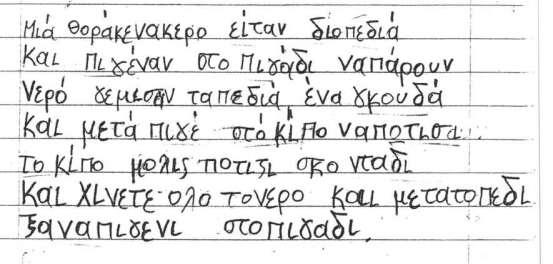 Μιά θοράκενακερο είταν διοπεδιά
Και πιγέναν στο πιγάδι ναπάρουν
Νερό γεμισαν ταπεδιά ένα γκουδά
Και μετά πιγέ στό κίπο ναποτισα..
το κίπο μολις ποτιζι σκο νταδι
Και χινετε ολο τονερο και μετατοπεδι
ξαναπιγενι στοπιγαδι.